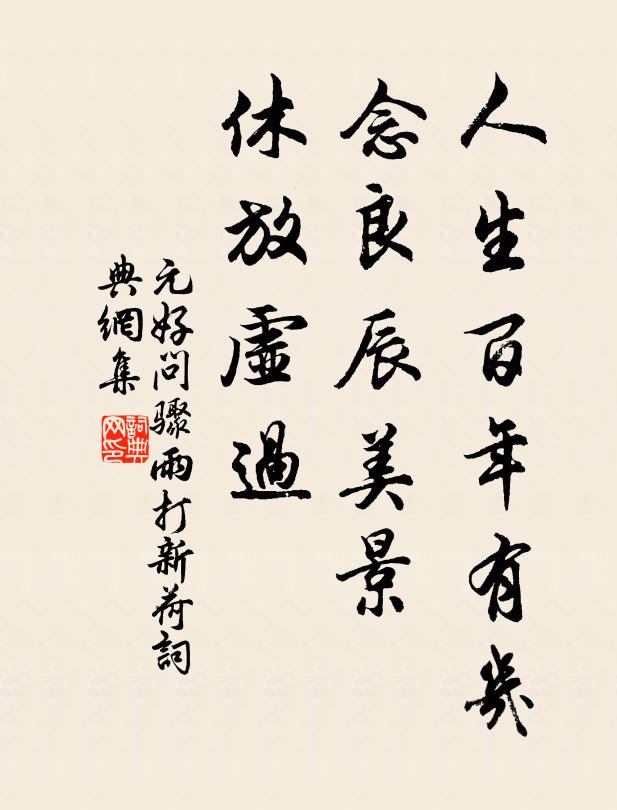 人生百年有幾
念良辰美景
休放虛過
元好問驟雨打新荷詞
典網集
詞典
网印